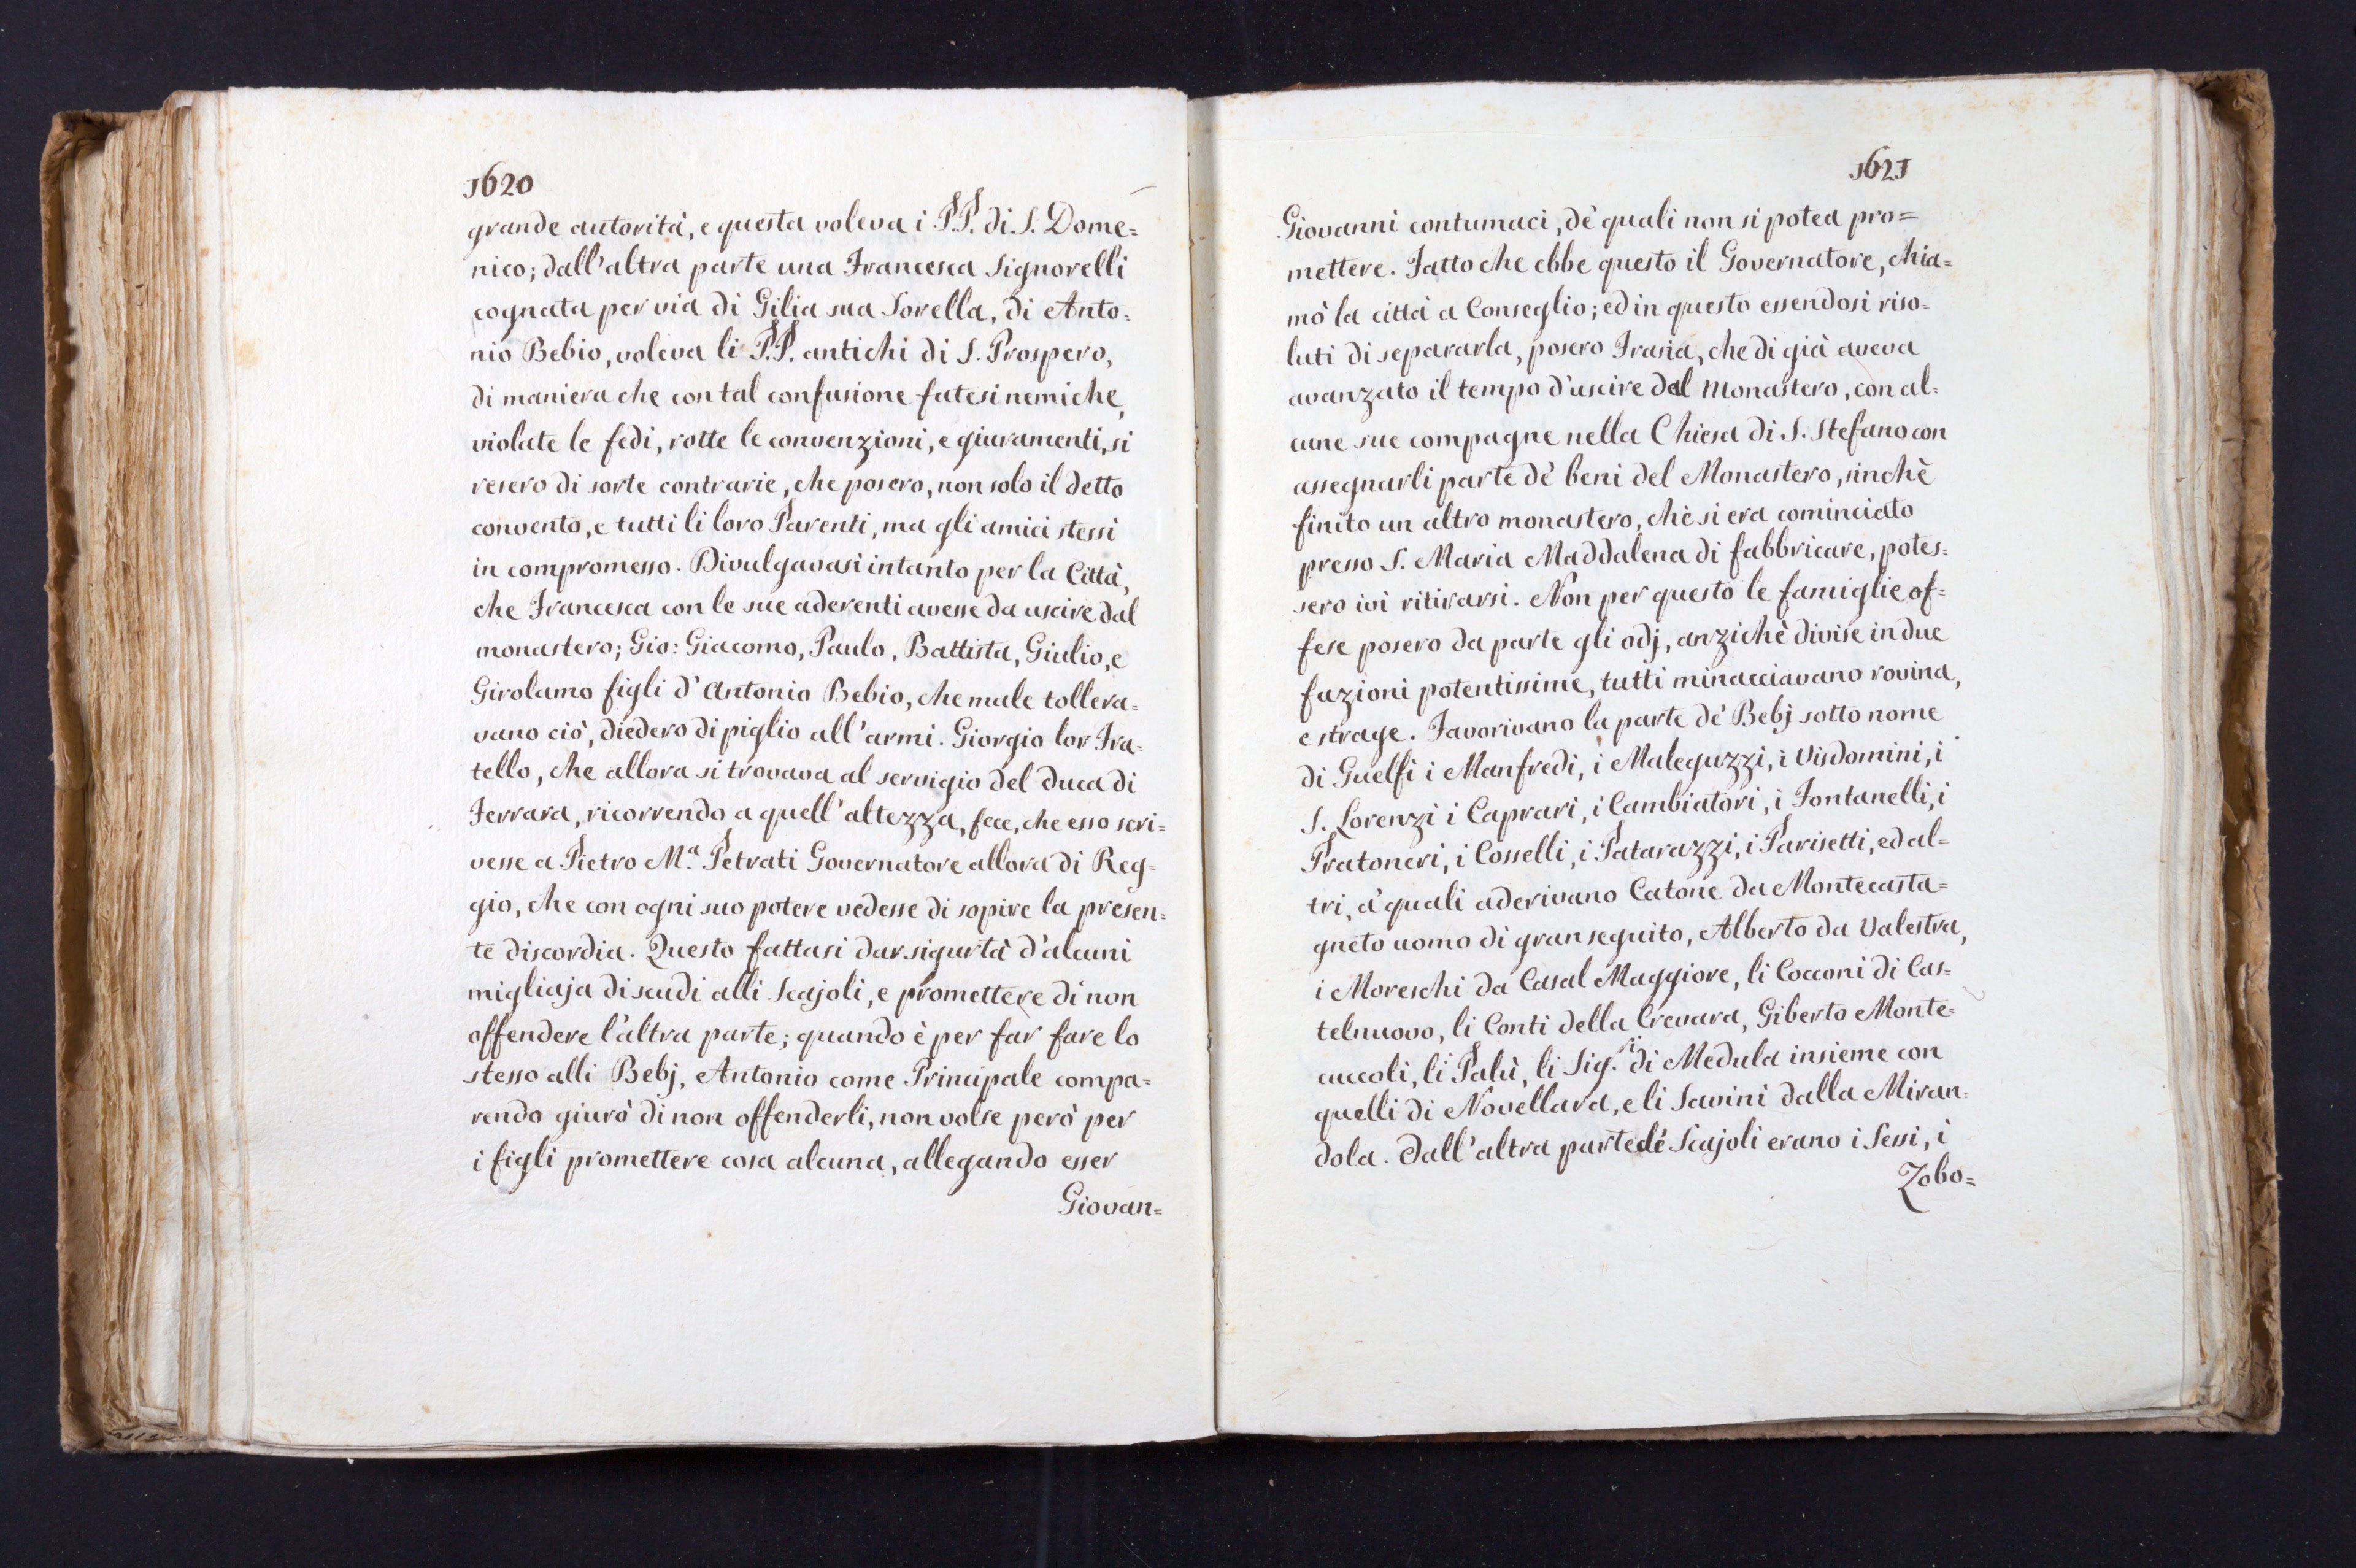 1620
grande autorità, e questa voleva i P.P. di S. Dome=
nico; dall'altra parte una Francesca Signorelli
cognata per via di Gilia sua Sorella, di Anto=
nio Bebio, voleva li P.P. antichi di S. Prospero,
di maniera che con tal confusione fatesi nemiche,
violate le fedi, rotte le convenzioni, e giuramenti, si
resero di sorte contrarie, che posero, non solo il detto
convento, e tutti li loro Parenti, ma gli amici stessi
in compromesso. Divulgavasi intanto per la Città,
che Francesca con le sue aderenti avesse da uscire dal
monastero; Gio: Giacomo, Paulo, Battista, Giulio, e
Girolamo figli d'Antonio Bebio, che male tollera=
vano ciò, diedero di piglio all'armi. Giorgio lor Fra=
tello, che allora si trovava al servigio del Duca di
Ferrara, ricorrendo a quell'altezza, fece, che esso scri=
vesse a Pietro M.a Petrati Governatore allora di Reg=
gio, che con ogni suo potere vedesse di sopire la presen=
te discordia. Questo fattasi dar sigurtà d'alcuni
migliaja di scudi alli Scajoli, e promettere di non
offendere l'altra parte; quando è per far fare lo
stesso alli Bebj, Antonio come Principale compa=
rendo giurò di non offenderli, non volse però per
i figli promettere cosa alcuna, allegando esser
Giovan=
1621
Giovanni contumaci, de' quali non si potea pro=
mettere. Fatto che ebbe questo il Governatore, chia=
mò la città a Conseglio; ed in questo essendosi riso=
luti di separarla, posero Frasia, che di già aveva
avanzato il tempo d'uscire dal Monastero, con al=
cune sue compagne nella Chiesa di S. Stefano con
assegnarli parte de' beni del Monastero, sinchè
finito un altro monastero, chè si era cominciato
presso S. Maria Maddalena di fabbricare, potes=
sero ivi ritirarsi. Non per questo le famiglie of=
fese posero da parte gli odj, anzichè divise in due
fazioni potentissime, tutti minacciavano rovina,
e strage. Favorivano la parte de' Bebj sotto nome
di Guelfi i Manfredi, i Maleguzzi, i Visdomini, i
S. Lorenzi i Caprari, i Cambiatori, i Fontanelli, i
Pratoneri, i Cosselli, i Patarazzi, i Parisetti, ed al=
tri, a' quali aderivano Catone da Montecasta=
gneto uomo di gran seguito, Alberto da Valestra,
i Moreschi da Casal Maggiore, li Cocconi di Cas=
telnuovo, li Conti della Crevara, Giberto Monte=
cuccoli, li Palù, li Sig.ri di Medula insieme con
quelli di Novellara, e li Savini dalla Miran=
dola. Dall'altra parte de' Scajoli erano i Sessi, i
Zobo=